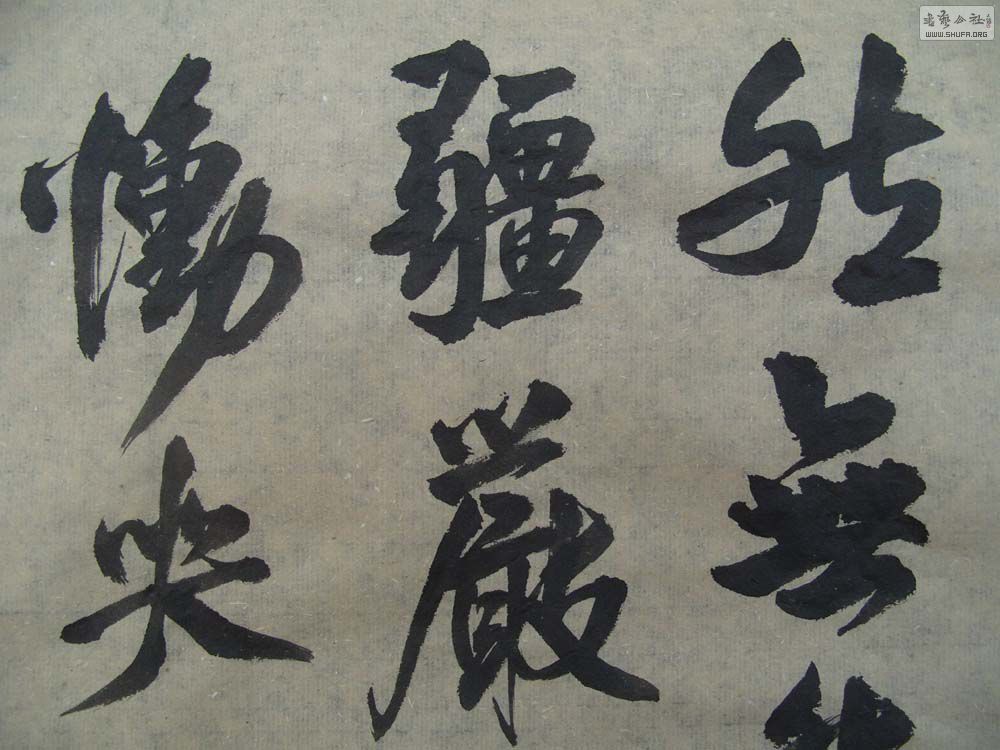 書藝公社
WWW.SHUFA.ORG
無
疆嚴
慟哭